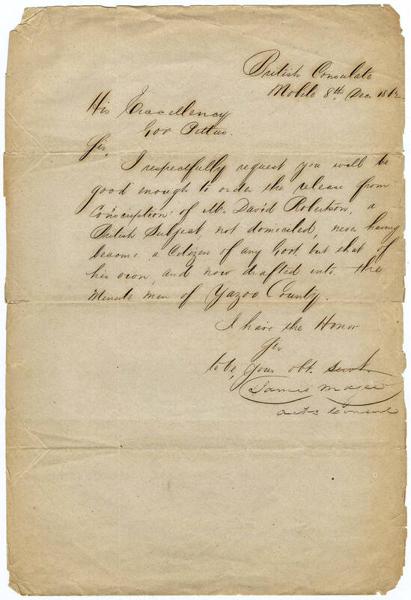 British Consulate
Mobile 8th Dec 1862
His Excellency
Gov Pettus.
Sir,
I respectfully request you will be
good enough to order the release from
Conscription of Mr. David Robertson, a
British Subject not domiciled, never having
become a Citizen of any Govt but that of
his own, and now drafted into the
Minute men of Yazoo County.
I have the Honor
Sir
to be, your obt. Servt
James Magee
Actg Consul